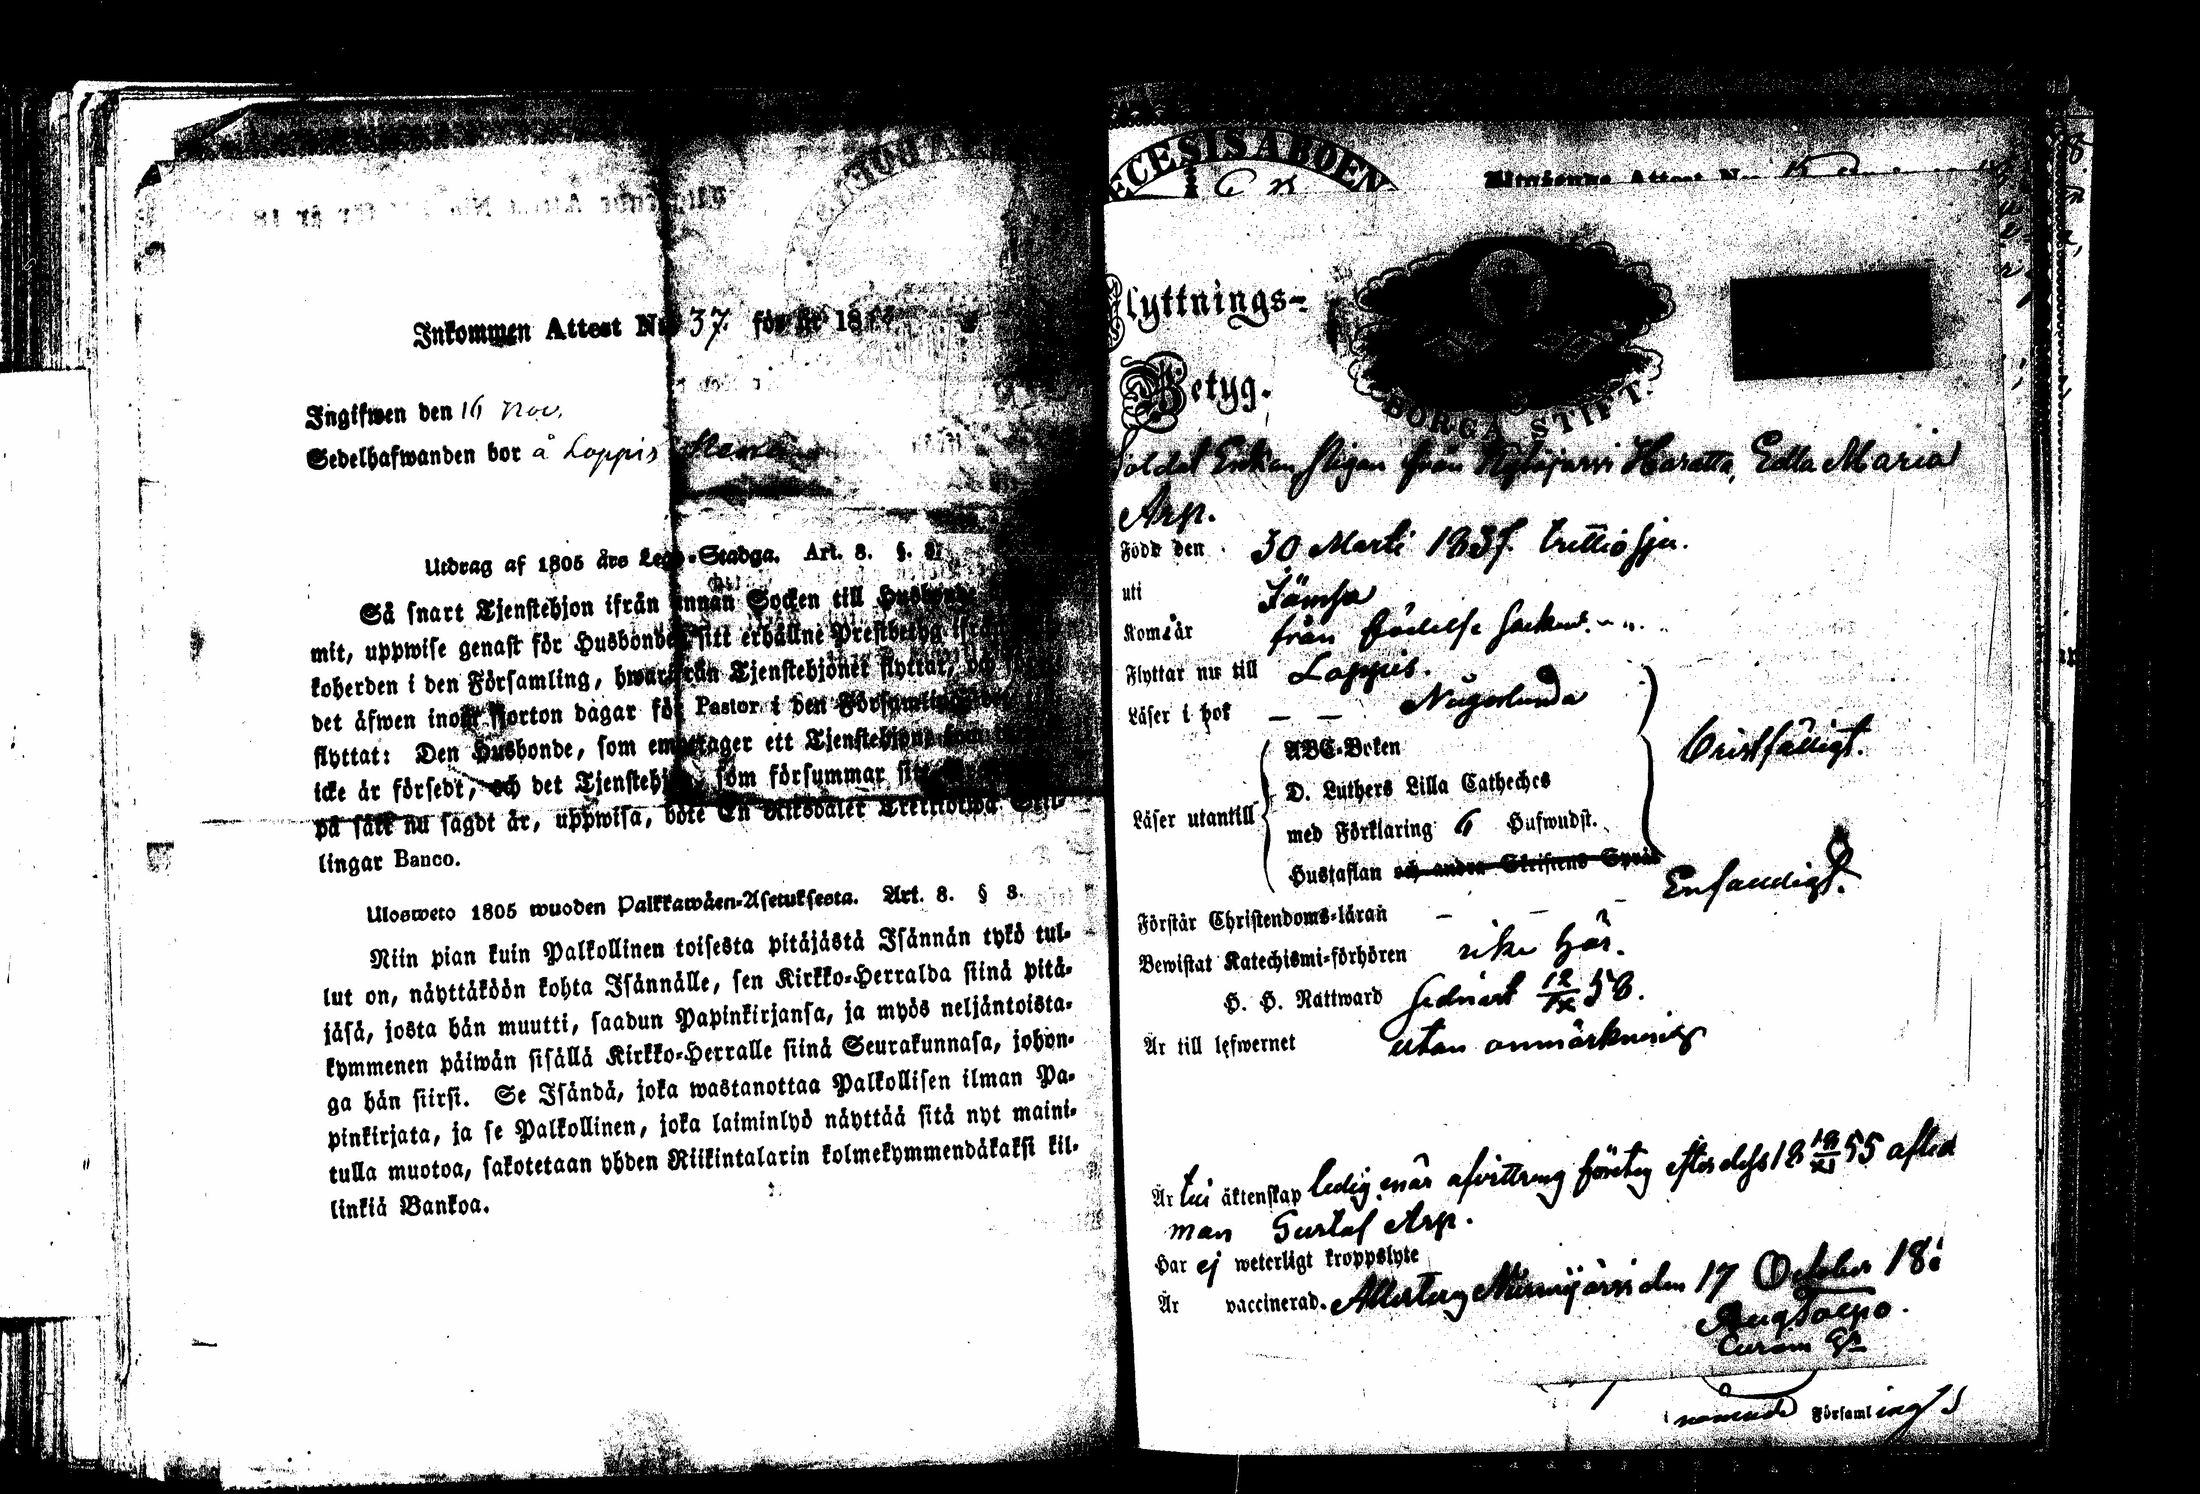 Inkommen Attest No 37. för år 18
Ingifwen den 16 Nov.
Sedelhafwanden bor å Loppis
Utdrag af 1805 års Lego-Stadga. Art. 8. §.
Så snart Tjenstehjon ifrån annan Socken till Husbonde
mit, uppwise genast för Husbonden sitt erhållne Prestbetyg ifrån
koherden i den Församling, hwarifrån Tjenstehjonet flyttat, och
det äfwen inom fjorton dagar för Pastor i den Församling
flyttat: Den Husbonde, som emottager ett Tjenstehjon som
icke är försedt, och det Tjenstehjon, som försummar
på sätt nu sagdt är, uppwisa, böte En Riksdaler Trettiotwå Skil-
lingar Banco.
Ulosweto 1805 wuoden Palkkawäen-Asetuksesta. Art. 8. § 3.
Niin pian kuin Palkollinen toisesta pitäjästä Isännän tykö tul-
lut on, näyttäköön kohta Isännälle, sen Kirkko-Herralda siinä pitä-
jäsä, josta hän muutti, saadun Papinkirjansa, ja myös neljäntoista-
kymmenen päiwän sisällä Kirkko-Herralle siinä Seurakunnasa, johon-
ga hän siirsi. Se Isändä, joka wastanottaa Palkollisen ilman Pa-
pinkirjata, ja se Palkollinen, joka laiminlyö näyttää sitä nyt maini-
tulla muotoa, sakotetaan yhden Riikintalarin kolmekymmendäkaksi kil-
linkiä Bankoa.
ECESIS ABOEN
Attest No 15
Flyttnings-
Betyg.
BORGA STIFT.
Soldat Enkan från Haratta, Edla Maria
Arp.
Född den 30 Marti 1837. trettiosju.
uti Jämsä
Kom: år från födelse socken.
Flyttar nu till Loppis.
Läser i bok — — Någorlunda
ABC-Boken
D. Luthers Lilla Catheches
Bristfälligt.
Läser utantill
med Förklaring 6 Hufwudst.
Hustaflan och andra Skriftens Språk
Förstår Christendoms-läran — — — Enfaldigt.
Bewistat Katechismi-förhören icke här.
H. H. Nattward sednast 12/IX 58.
Är till lefwernet utan anmärkning
Är till äktenskap ledig, när afvittring företeg efter dess 18 18/XI 55 aflid
man Gustaf Arp.
Har ej weterligt kroppslyte
Är vaccinerad. Nurmijärvi den 17 October 18
Församlings